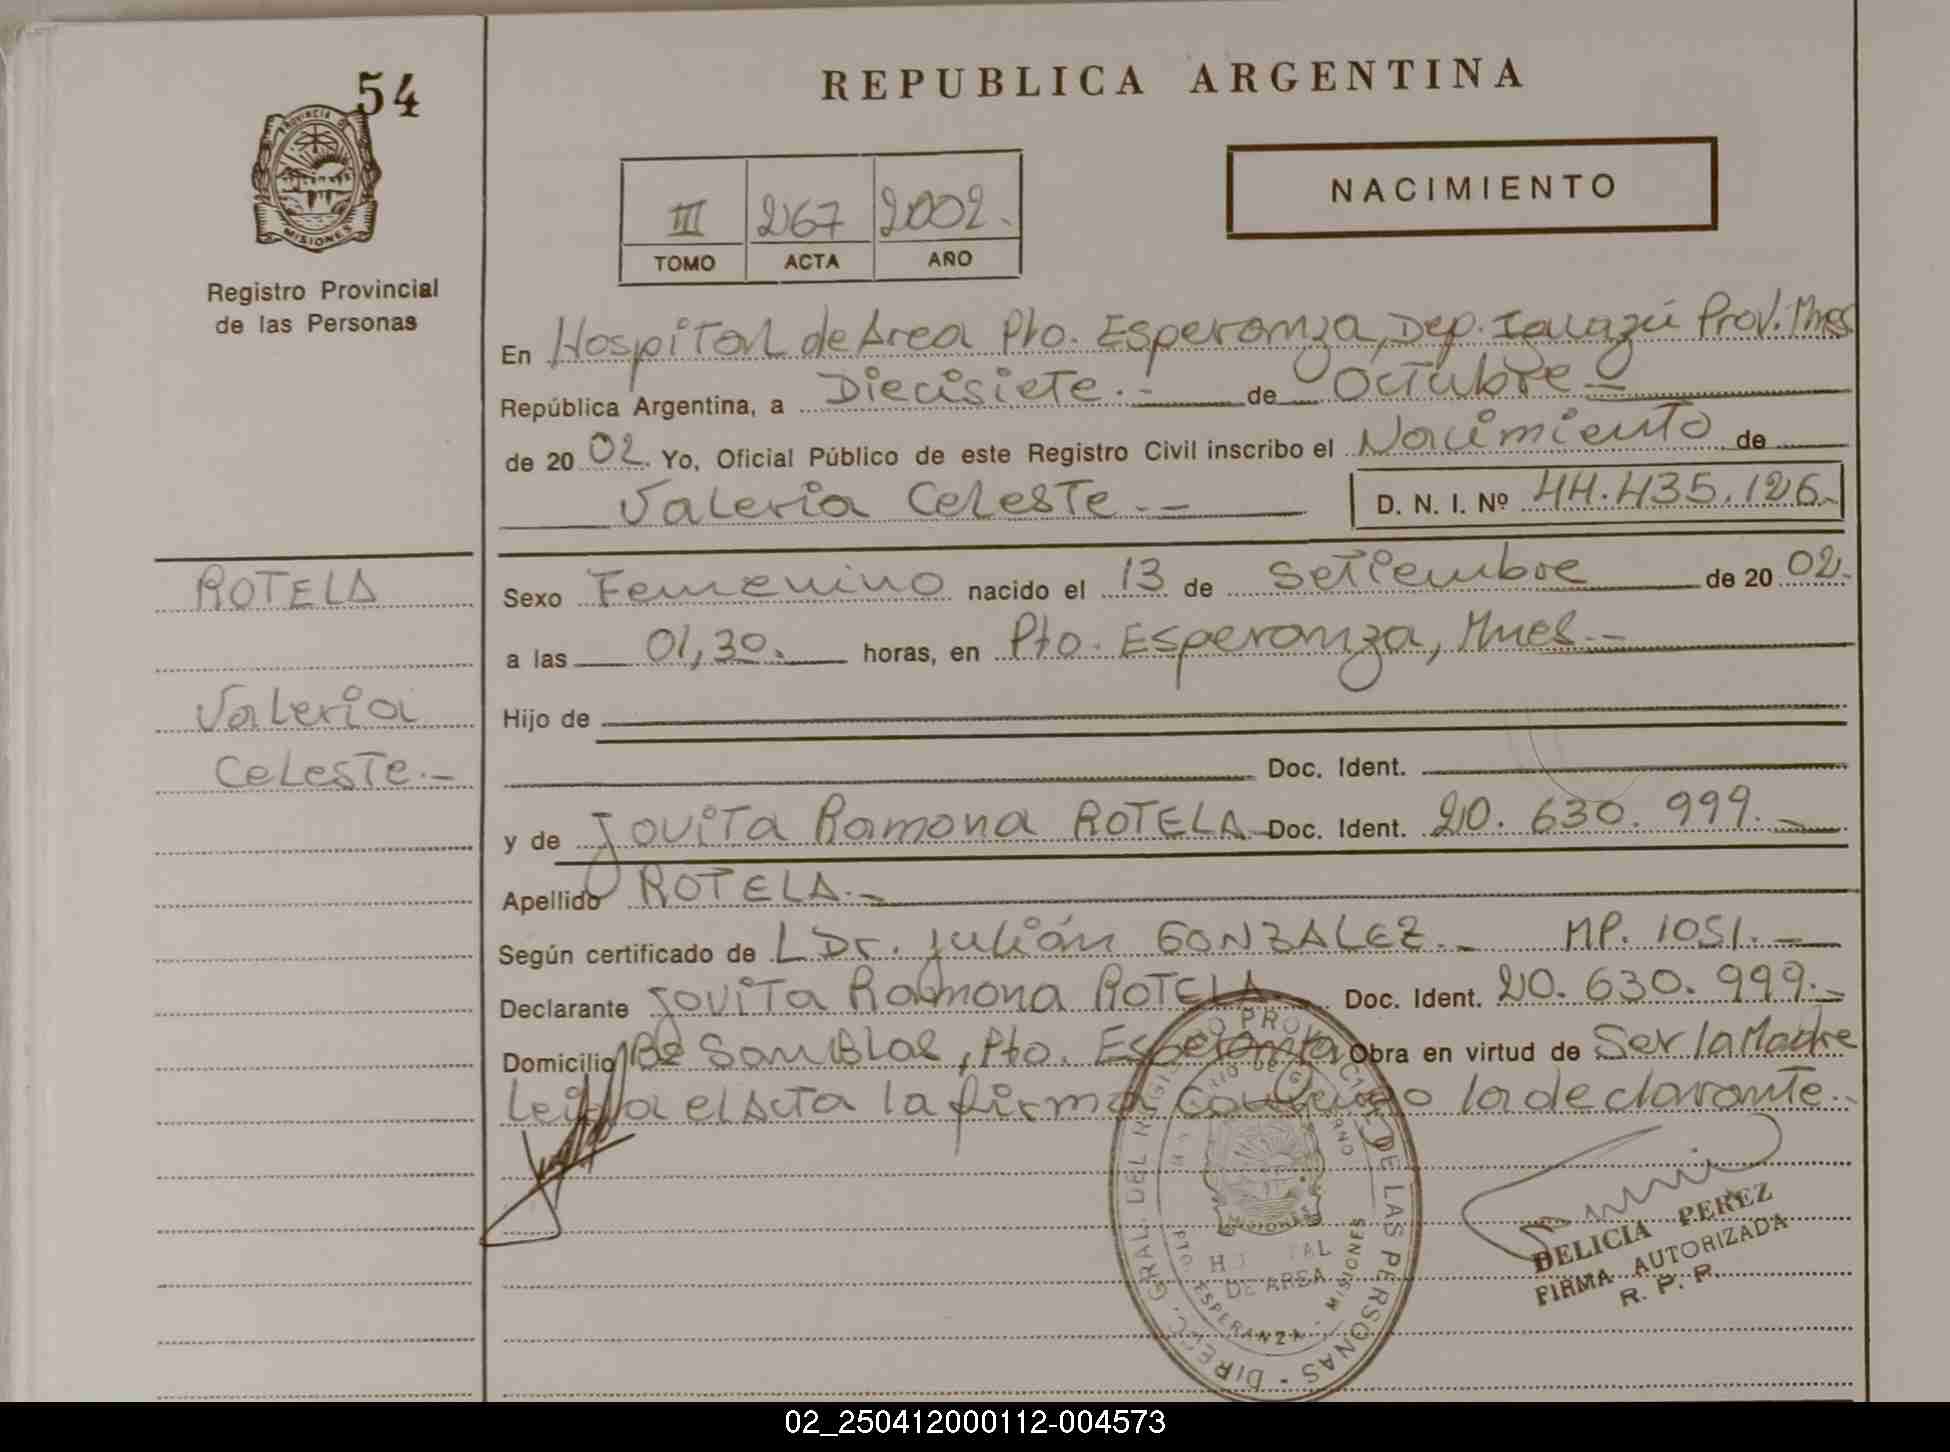 54
PROVINCIA DE
MISIONES
Registro Provincial
de las Personas
REPUBLICA ARGENTINA
NACIMIENTO
III 267 2002.
TOMO ACTA AÑO
En Hospital de Area Pto. Esperanza, Dep. Iguazú Prov. Mnes
República Argentina, a Diecisiete.- de Octubre-
de 20 02. Yo, Oficial Público de este Registro Civil inscribo el Nacimiento de
Valeria Celeste.- D. N. I. Nº 44.435.126.-
ROTELA
Valeria
Celeste.-
Sexo Femenino nacido el 13 de Setiembre de 20 02.
a las 01,30. horas, en Pto. Esperanza, Mnes.-
Hijo de
Doc. Ident.
y de Jovita Ramona ROTELA Doc. Ident. 20. 630. 999.-
Apellido ROTELA.-
Según certificado de L Dr. Julián GONZALEZ.- MP. 1051.-
Declarante Jovita Ramona ROTELA Doc. Ident. 20. 630. 999.-
Domicilio Bº San Blas, Pto. Esperanza Obra en virtud de Ser la Madre
Leida el Acta la firma conmigo la declarante.-
DIREC. GRAL. DEL REGISTRO PROVINCIAL DE LAS PERSONAS -
MINISTERIO DE GOBIERNO
MISIONES
H TAL
DE AREA
PTO. ESPERANZA - MISIONES
DELICIA PEREZ
FIRMA AUTORIZADA
R. P. P.
02_250412000112-004573